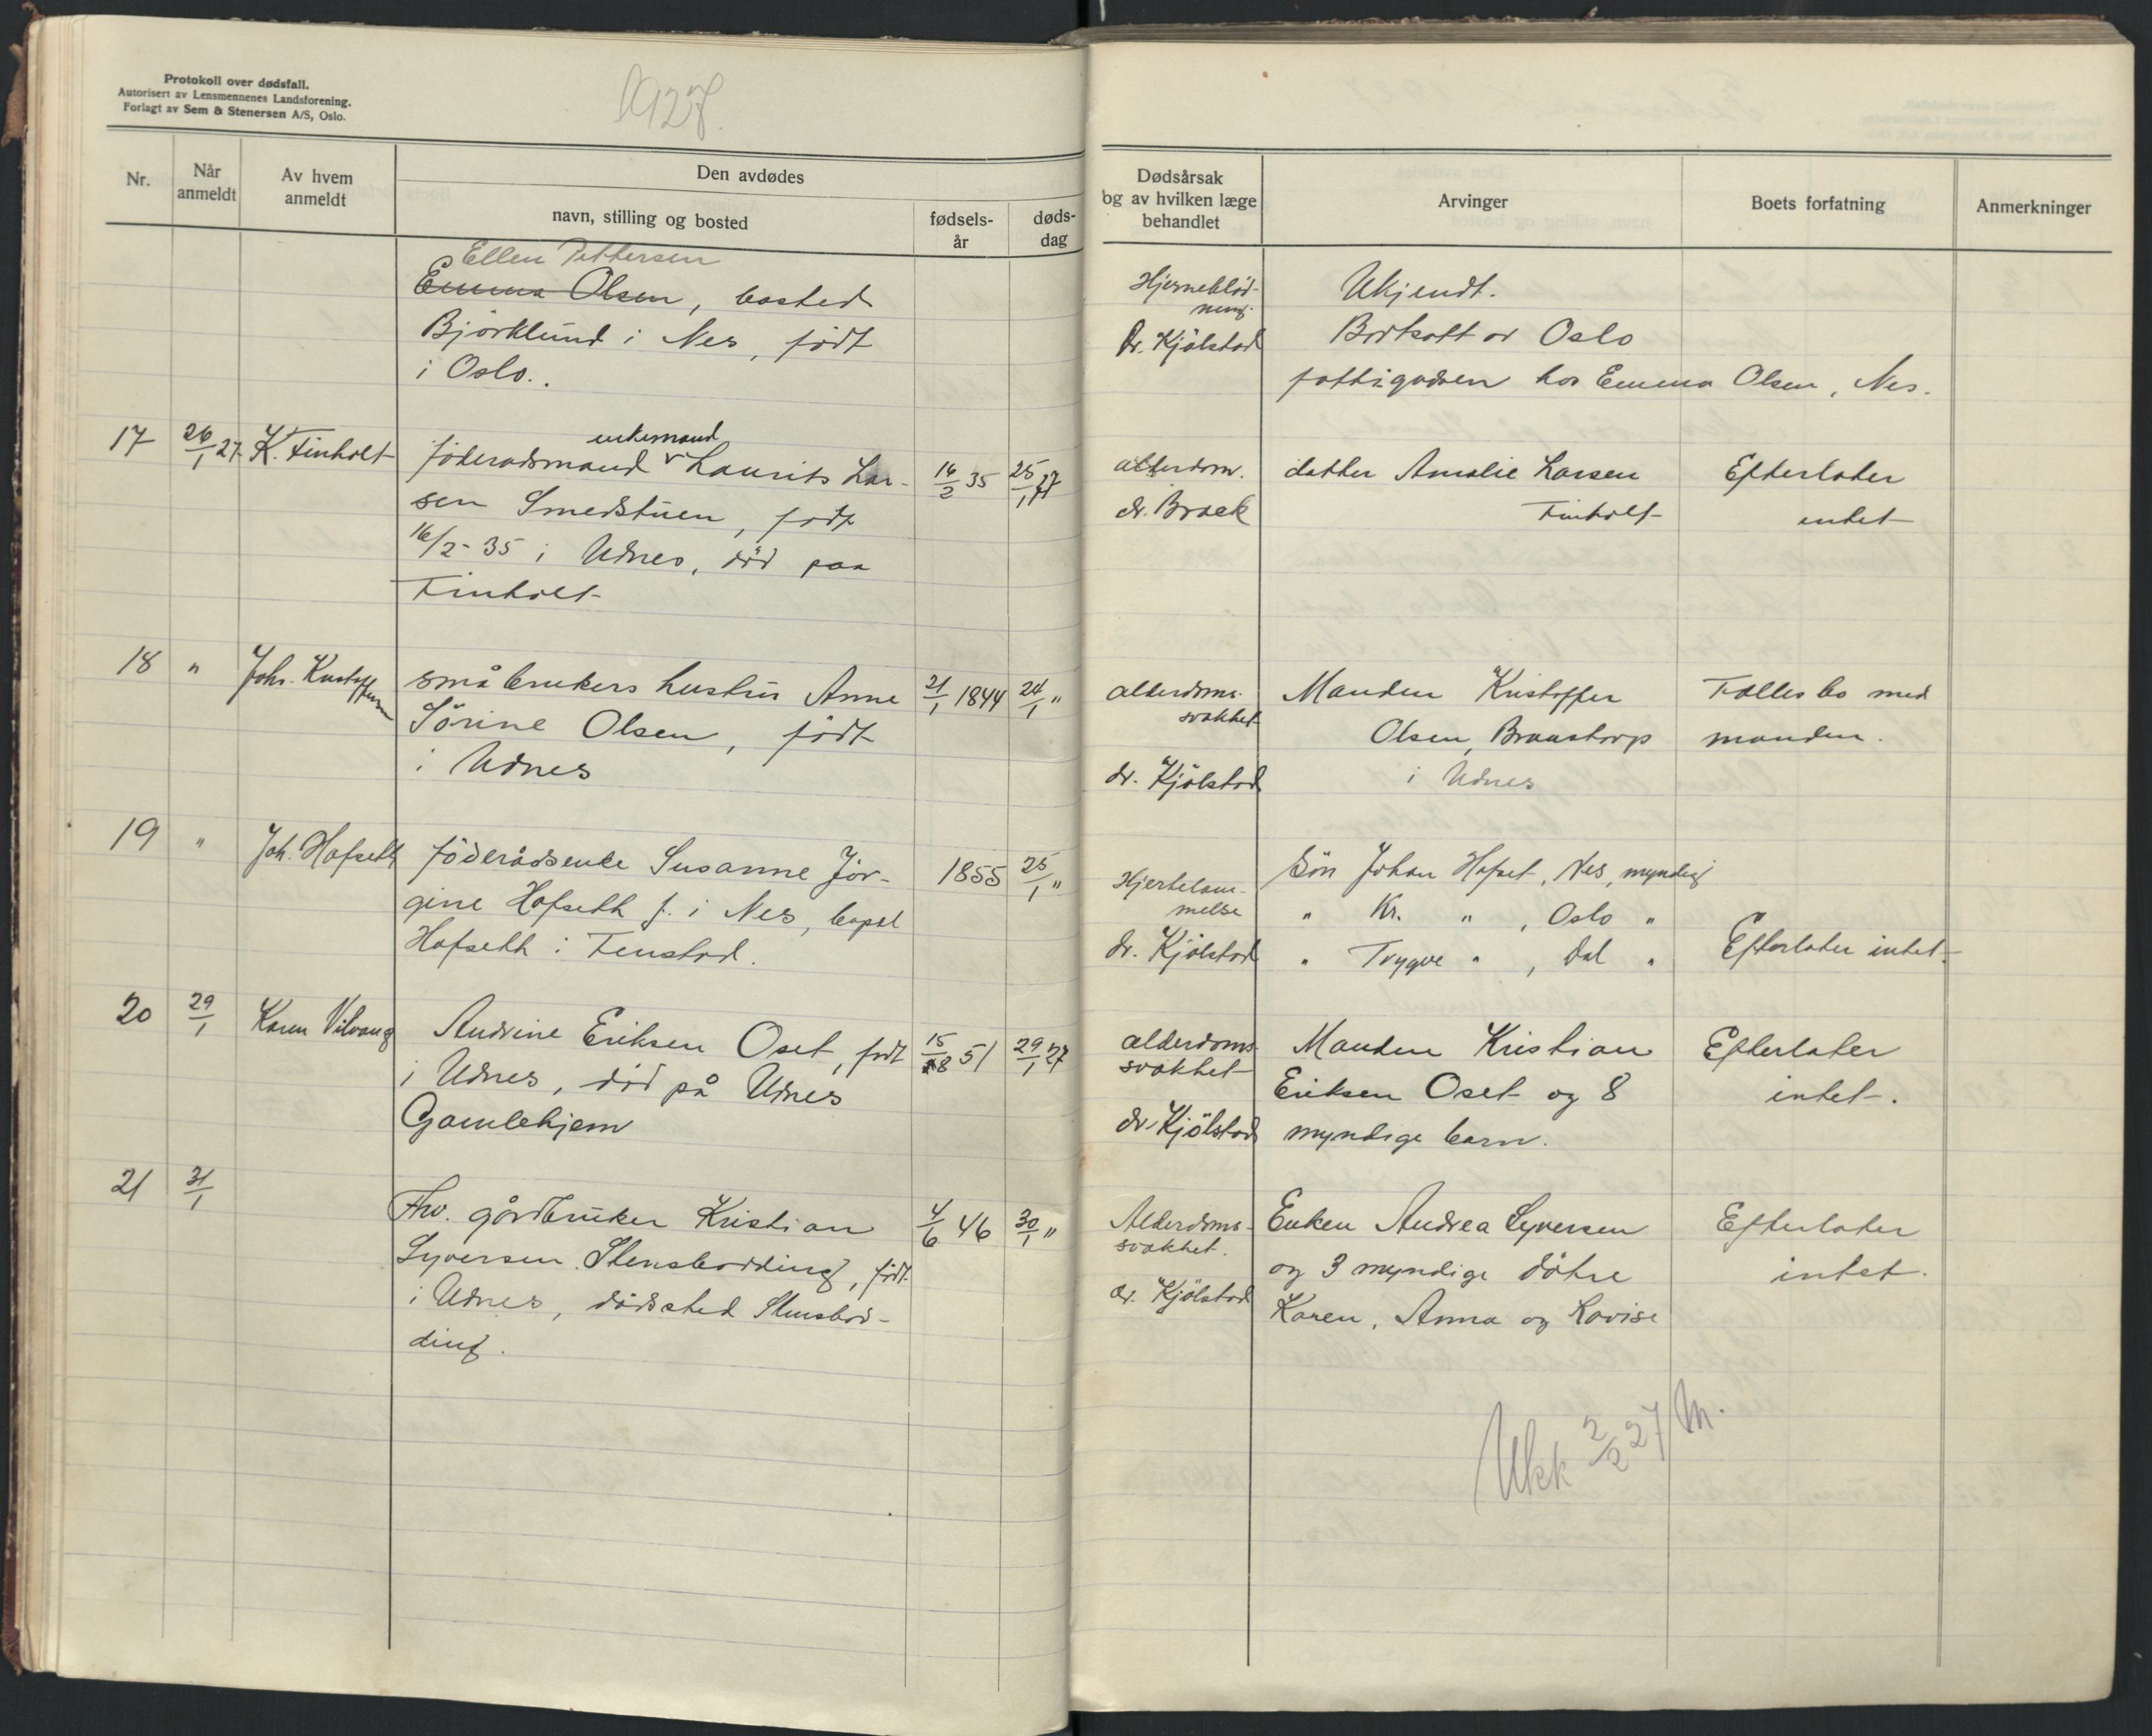 Protokoll over dødsfall.
Autorisert av Lensmennenes Landsforening.
Forlagt av Sem & Stenersen A/S, Oslo.
1927.
Nr.
Når anmeldt
Av hvem anmeldt
Den avdødes
navn, stilling og bosted
fødselsår
dødsdag
Dødsårsak
og av hvilken læge
behandlet
Arvinger
Boets forfatning
Anmerkninger
Ellen Pettersen
Emma Olsen, bosted
Björklund i Nes, født
i Oslo.
Hjerneblød-
ning.
Dr. Kjölstad
Ukjendt.
Bortsatt av Oslo
fattigvæsen hos Emma Olsen, Nes.
17 26/1 27 K. Finholt
enkemand
föderadsmand v Laurits Lar- 16/2 35 25/1 27
sen Smedstuen, født
16/2-35 i Udnes, död paa
Finholt
alderdom.
dr. Braek
datter Amalie Larsen
Finholt
Efterlater
intet
18 " Johs. Kristoffersen
småbrukers hustru Anne 21/1 1844 24/1 "
Sörine Olsen, født
i Udnes
alderdoms-
svakhet
dr. Kjölstad
Manden Kristoffer
Olsen, Braastorp
i Udnes
Fælles bo med
manden.
19 " Joh. Hofseth
föderådsenke Susanne Jör- 1855 25/1 "
gine Hofseth f. i Nes, bopæl
Hofseth i Fenstad.
Hjertelam-
melse
dr. Kjölstad
Sön Johan Hofset, Nes, myndig
" Kr. " , Oslo "
" Trygve " , Dal "
Efterlater intet.
20 29/1 Karen Vilvang
Andrine Eriksen Oset, født 15/8 51 29/1 27
i Udnes, död på Udnes
Gamlehjem
alderdoms
svakhet
dr. Kjölstad
Manden Kristian
Eriksen Oset og 8
myndige barn.
Efterlater
intet.
21 31/1
Fhv. gårdbruker Kristian 4/6 46 30/1 "
Syversen Stensbordding, født
i Udnes, dödssted Stensbord-
ding.
Alderdoms-
svakhet.
dr. Kjölstad
Enken Andrea Syversen
og 3 myndige döttre
Karen, Anna og Lovise
Efterlater
intet.
Ukk 2/2 27 M.